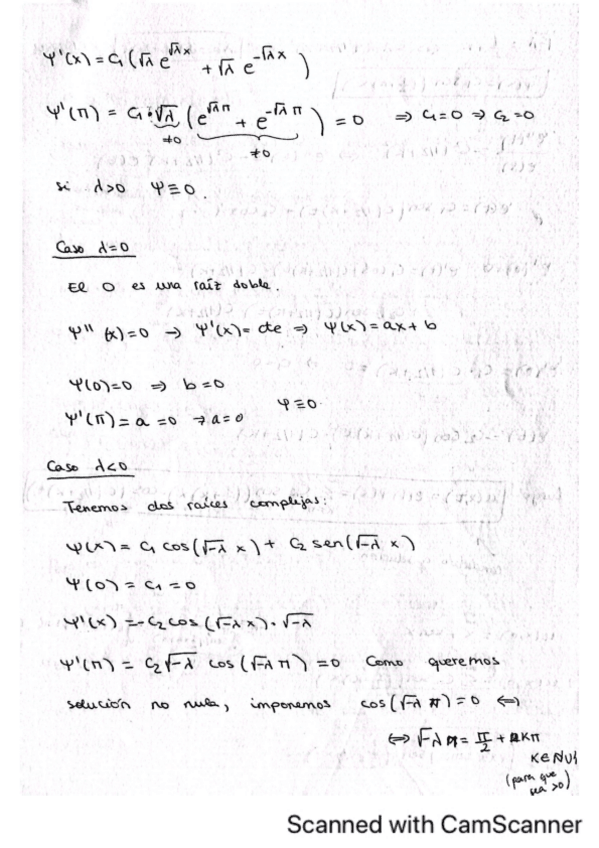 Ψ'(x) = C₁(√λ e^{√λx} + √λ e^{-√λx})
Ψ'(π) = C₁·√λ (e^{√λπ} + e^{-√λπ}) = 0 ⇒ C₁=0 ⇒ C₂=0
≠0 ≠0
si λ>0 Ψ≡0.
Caso λ=0
El 0 es una raíz doble.
Ψ''(x)=0 → Ψ'(x)= cte ⇒ Ψ(x)=ax+b
Ψ(0)=0 ⇒ b=0
Ψ'(π)=a=0 → a=0 Ψ≡0
Caso λ<0
Tenemos dos raíces complejas:
Ψ(x)= C₁ cos(√-λ x)+ C₂ sen(√-λ x)
Ψ(0) = C₁ = 0
Ψ'(x) = C₂ cos(√-λ x)·√-λ
Ψ'(π) = C₂√-λ cos(√-λ π) = 0 Como queremos
solución no nula, imponemos cos(√-λ π)=0 ⇔
⇔ √-λ π = π/2 + kπ
K∈ℕ∪
(para que
sea >0)
Scanned with CamScanner